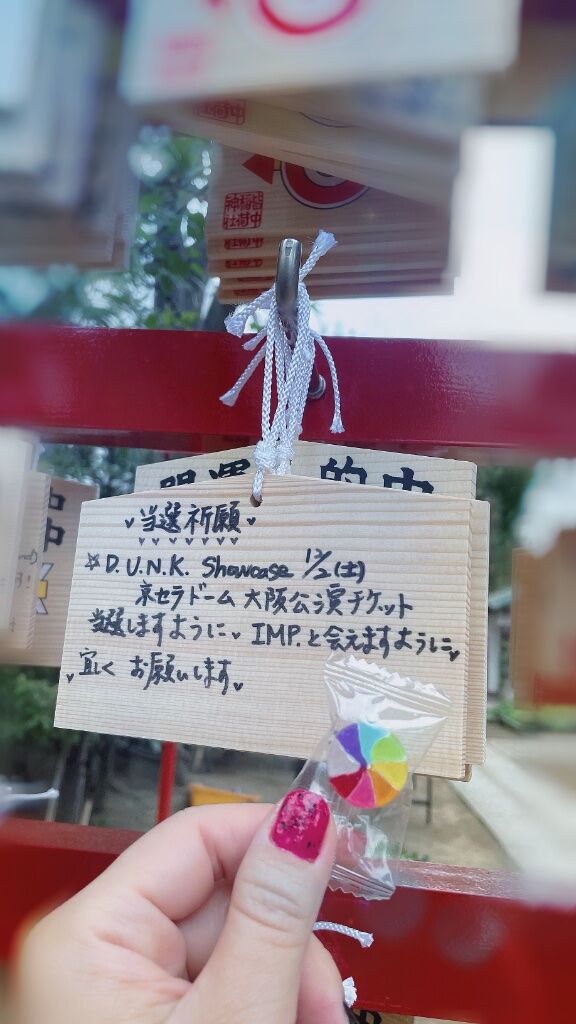 皆中
稲荷
神社
開運 的中
当選祈願
☆D.U.N.K. Showcase 12/2(土)
京セラドーム大阪公演チケット
当選しますように♥ IMP.と会えますように♥
宜しく お願いします♥
中